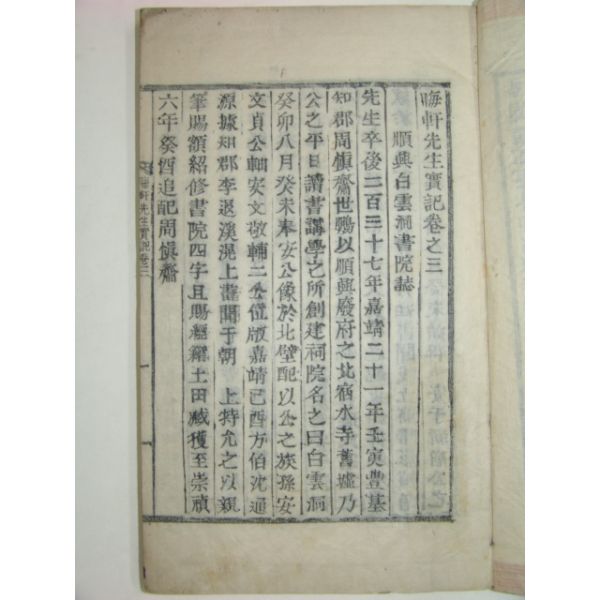 晦軒先生實記卷之三
順興白雲洞書院誌
先生卒後二百三十七年嘉靖二十一年壬寅豊基
知郡周愼齋世鵬以順興廢府之北宿水寺舊墟乃
公之平日讀書講學之所創建祠院名之曰白雲洞
癸卯八月癸未奉安公像於北壁配以公之族孫安
文貞公軸安文敬輔二公位版嘉靖己酉方伯沈通
源據知郡李退溪滉上書聞于朝 上特允之以親
筆賜額紹修書院四字且賜經籍土田臧獲至崇禎
六年癸酉追配周愼齋
晦軒先生實記卷三